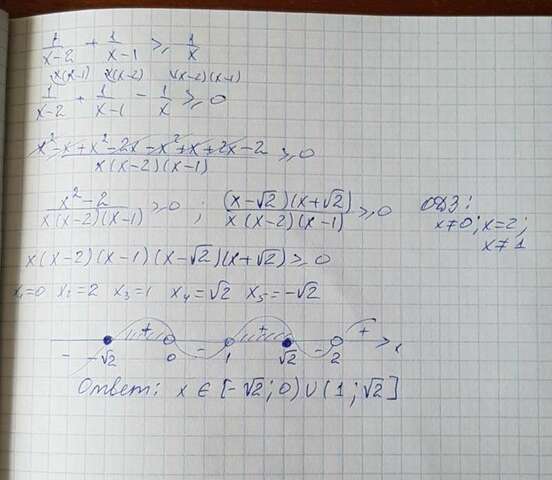 1/(x-2) + 1/(x-1) ≥ 1/x
x(x-1) x(x-2) (x-2)(x-1)
1/(x-2) + 1/(x-1) - 1/x ≥ 0
(x²-x+x²-2x-x²+x+2x-2)/(x(x-2)(x-1)) ≥ 0
(x²-2)/(x(x-2)(x-1)) ≥ 0 ; ((x-√2)(x+√2))/(x(x-2)(x-1)) ≥ 0
ОДЗ:
x≠0; x=2;
x≠1
x(x-2)(x-1)(x-√2)(x+√2) ≥ 0
x₁=0 x₂=2 x₃=1 x₄=√2 x₅=-√2
- + - + - +
-√2 0 1 √2 2 x
Ответ: x ∈ [-√2; 0) ∪ (1; √2]